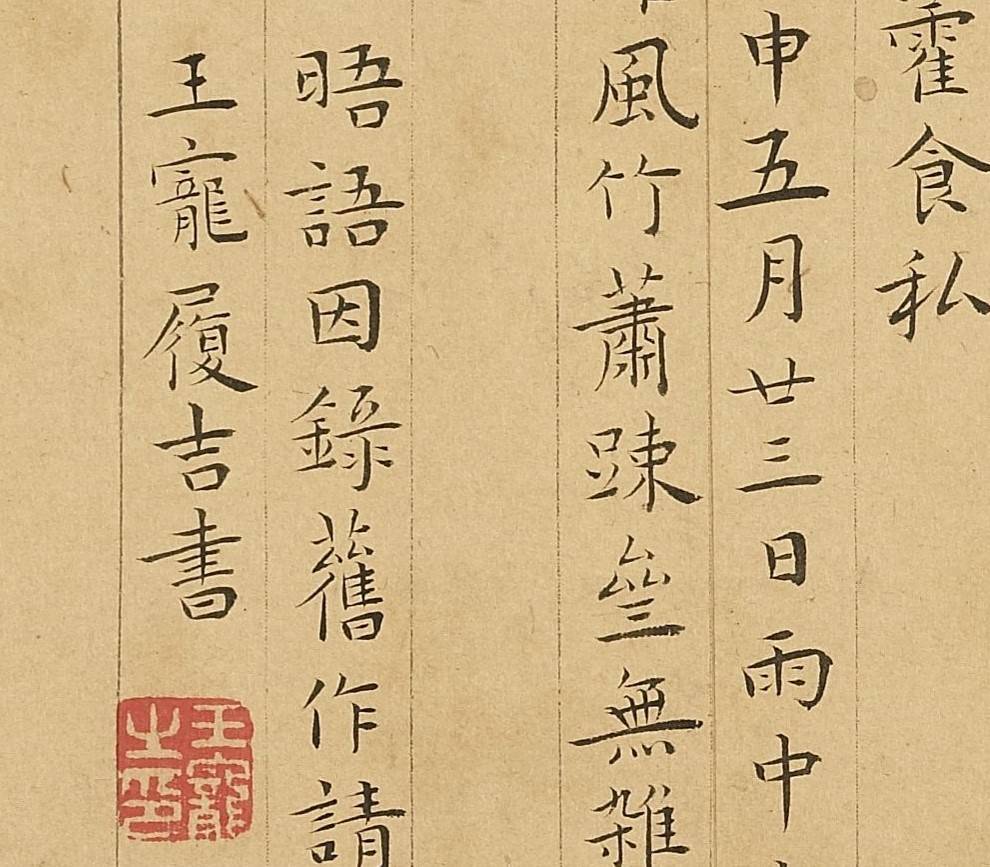 藿食私
申五月廿三日雨中
風竹蕭踈坐無雜
晤語因錄舊作請
王寵履吉書
王寵之印